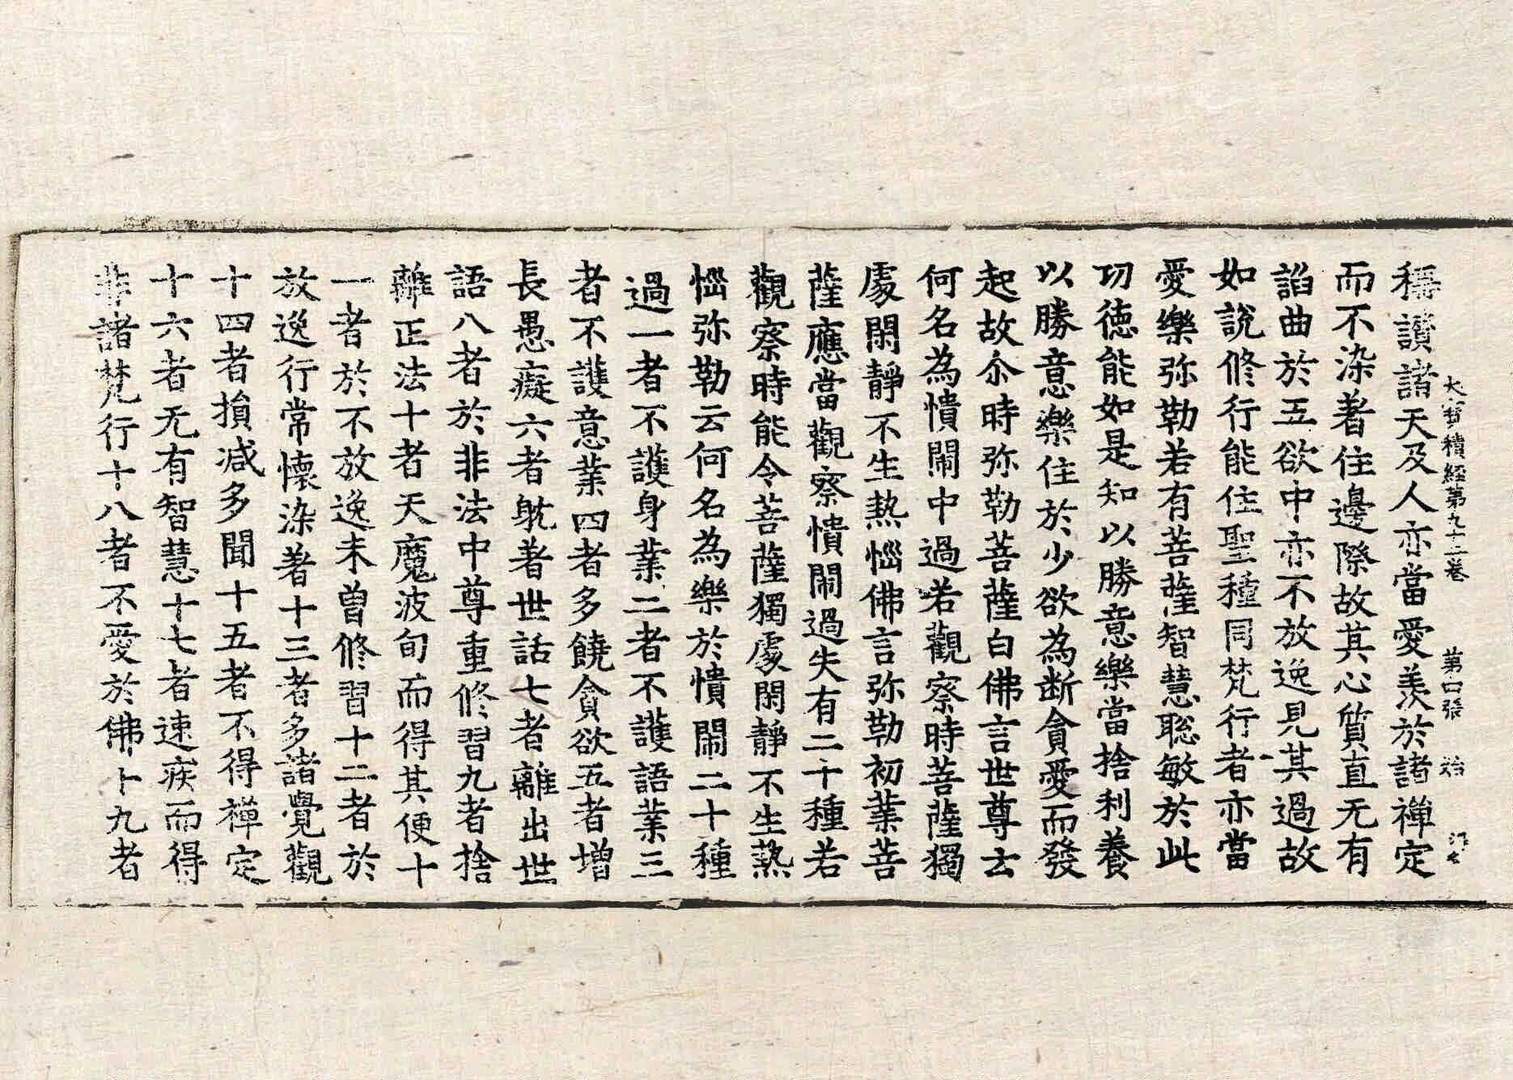 大寶積經第九十二卷 第口張 始
稱讚諸天及人亦當愛羨於諸禪定
而不染著住邊際故其心質直无有
諂曲於五欲中亦不放逸見其過故
如說修行能住聖種同梵行者亦當
愛樂弥勒若有菩薩智慧聡敏於此
功徳能如是知以勝意樂當捨利養
以勝意樂住於少欲為断貪愛而發
起故尒時弥勒菩薩白佛言世尊云
何名為憒閙中過若觀察時菩薩獨
處閑靜不生熱惱佛言弥勒初業菩
薩應當觀察憒閙過失有二十種若
觀察時能令菩薩獨處閑靜不生熱
惱弥勒云何名為樂於憒閙二十種
過一者不護身業二者不護語業三
者不護意業四者多饒貪欲五者增
長愚癡六者躭著世話七者離出世
語八者於非法中尊重修習九者捨
離正法十者天魔波旬而得其便十
一者於不放逸未曾修習十二者於
放逸行常懷染著十三者多諸覺觀
十四者損减多聞十五者不得禪定
十六者无有智慧十七者速疾而得
非諸梵行十八者不愛於佛十九者